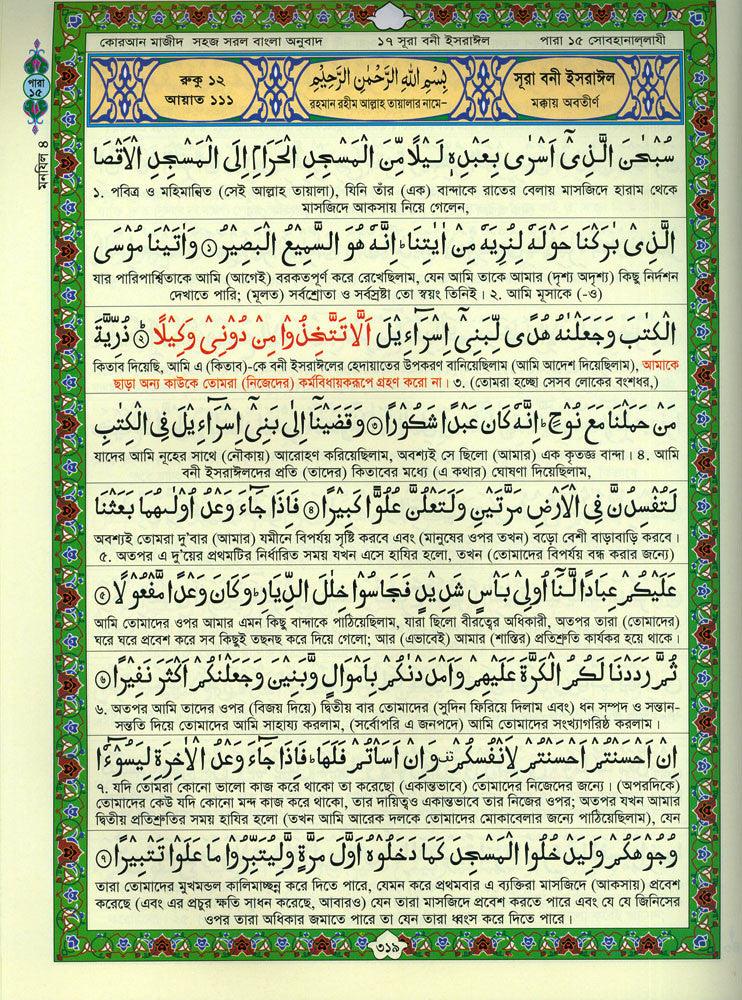 কোরআন মাজীদ সহজ সরল বাংলা অনুবাদ ১৭ সূরা বনী ইসরাঈল পারা ১৫ সোবহানাল্লাযী
পারা
১৫
মনযিল ৪
রুকু ১২
আয়াত ১১১
بِسْمِ اللهِ الرَّحْمٰنِ الرَّحِيْمِ
রহমান রহীম আল্লাহ তায়ালার নামে–
সূরা বনী ইসরাঈল
মক্কায় অবতীর্ণ
سُبْحٰنَ الَّذِيْٓ اَسْرٰى بِعَبْدِهٖ لَيْلًا مِّنَ الْمَسْجِدِ الْحَرَامِ اِلَى الْمَسْجِدِ الْاَقْصَا
১. পবিত্র ও মহিমান্বিত (সেই আল্লাহ তায়ালা), যিনি তাঁর (এক) বান্দাকে রাতের বেলায় মাসজিদে হারাম থেকে
মাসজিদে আকসায় নিয়ে গেলেন,
الَّذِيْ بٰرَكْنَا حَوْلَهٗ لِنُرِيَهٗ مِنْ اٰيٰتِنَا ؕ اِنَّهٗ هُوَ السَّمِيْعُ الْبَصِيْرُ ﴿১﴾ وَاٰتَيْنَا مُوْسَى
যার পারিপার্শ্বিতাকে আমি (আগেই) বরকতপূর্ণ করে রেখেছিলাম, যেন আমি তাকে আমার (দৃশ্য অদৃশ্য) কিছু নিদর্শন
দেখাতে পারি; (মূলত) সর্বশ্রোতা ও সর্বস্রষ্টা তো স্বয়ং তিনিই। ২. আমি মূসাকে (-ও)
الْكِتٰبَ وَجَعَلْنٰهُ هُدًى لِّبَنِيْٓ اِسْرَآءِيْلَ اَلَّا تَتَّخِذُوْا مِنْ دُوْنِيْ وَكِيْلًا ﴿২﴾ ؕ ذُرِّيَّةَ
কিতাব দিয়েছি, আমি এ (কিতাব)-কে বনী ইসরাঈলের হেদায়াতের উপকরণ বানিয়েছিলাম (আমি আদেশ দিয়েছিলাম), আমাকে
ছাড়া অন্য কাউকে তোমরা (নিজেদের) কর্মবিধায়করূপে গ্রহণ করো না। ৩. (তোমরা হচ্ছো সেসব লোকের বংশধর,)
مَنْ حَمَلْنَا مَعَ نُوْحٍ ؕ اِنَّهٗ كَانَ عَبْدًا شَكُوْرًا ﴿৩﴾ وَقَضَيْنَآ اِلٰى بَنِيْٓ اِسْرَآءِيْلَ فِي الْكِتٰبِ
যাদের আমি নূহের সাথে (নৌকায়) আরোহণ করিয়েছিলাম, অবশ্যই সে ছিলো (আমার) এক কৃতজ্ঞ বান্দা। ৪. আমি
বনী ইসরাঈলদের প্রতি (তাদের) কিতাবের মধ্যে (এ কথার) ঘোষণা দিয়েছিলাম,
لَتُفْسِدُنَّ فِي الْاَرْضِ مَرَّتَيْنِ وَلَتَعْلُنَّ عُلُوًّا كَبِيْرًا ﴿৪﴾ فَاِذَا جَآءَ وَعْدُ اُوْلٰىهُمَا بَعَثْنَا
অবশ্যই তোমরা দু'বার (আমার) যমীনে বিপর্যয় সৃষ্টি করবে এবং (মানুষের ওপর তখন) বড়ো বেশী বাড়াবাড়ি করবে।
৫. অতপর এ দু'য়ের প্রথমটির নির্ধারিত সময় যখন এসে হাযির হলো, তখন (তোমাদের বিপর্যয় বন্ধ করার জন্যে)
عَلَيْكُمْ عِبَادًا لَّنَآ اُولِيْ بَاْسٍ شَدِيْدٍ فَجَاسُوْا خِلٰلَ الدِّيَارِ ؕ وَكَانَ وَعْدًا مَّفْعُوْلًا ﴿৫﴾
আমি তোমাদের ওপর আমার এমন কিছু বান্দাকে পাঠিয়েছিলাম, যারা ছিলো বীরত্বের অধিকারী, অতপর তারা (তোমাদের)
ঘরে ঘরে প্রবেশ করে সব কিছুই তছনছ করে দিয়ে গেলো; আর (এভাবেই) আমার (শাস্তির) প্রতিশ্রুতি কার্যকর হয়ে থাকে।
ثُمَّ رَدَدْنَا لَكُمُ الْكَرَّةَ عَلَيْهِمْ وَاَمْدَدْنٰكُمْ بِاَمْوَالٍ وَّبَنِيْنَ وَجَعَلْنٰكُمْ اَكْثَرَ نَفِيْرًا ﴿৬﴾
৬. অতপর আমি তাদের ওপর (বিজয় দিয়ে) দ্বিতীয় বার তোমাদের (সুদিন ফিরিয়ে দিলাম এবং) ধন সম্পদ ও সন্তান-
সন্ততি দিয়ে তোমাদের আমি সাহায্য করলাম, (সর্বোপরি এ জনপদে) আমি তোমাদের সংখ্যাগরিষ্ঠ করলাম।
اِنْ اَحْسَنْتُمْ اَحْسَنْتُمْ لِاَنْفُسِكُمْ وَاِنْ اَسَاْتُمْ فَلَهَا ؕ فَاِذَا جَآءَ وَعْدُ الْاٰخِرَةِ لِيَسُوْٓءٗا
৭. যদি তোমরা কোনো ভালো কাজ করে থাকো তা করেছো (একান্তভাবে) তোমাদের নিজেদের জন্যে। (অপরদিকে)
তোমাদের কেউ যদি কোনো মন্দ কাজ করে থাকো, তার দায়িত্বও একান্তভাবে তার নিজের ওপর; অতপর যখন আমার
দ্বিতীয় প্রতিশ্রুতির সময় হাযির হলো (তখন আমি আরেক দলকে তোমাদের মোকাবেলার জন্যে পাঠিয়েছিলাম), যেন
وُجُوْهَكُمْ وَلِيَدْخُلُوا الْمَسْجِدَ كَمَا دَخَلُوْهُ اَوَّلَ مَرَّةٍ وَّلِيُتَبِّرُوْا مَا عَلَوْا تَتْبِيْرًا ﴿৭﴾
তারা তোমাদের মুখমন্ডল কালিমাচ্ছন্ন করে দিতে পারে, যেমন করে প্রথমবার এ ব্যক্তিরা মাসজিদে (আকসায়) প্রবেশ
করেছে (এবং এর প্রচুর ক্ষতি সাধন করেছে, আবারও) যেন তারা মাসজিদে প্রবেশ করতে পারে এবং যে যে জিনিসের
ওপর তারা অধিকার জমাতে পারে তা যেন তারা ধ্বংস করে দিতে পারে।
৩১৯